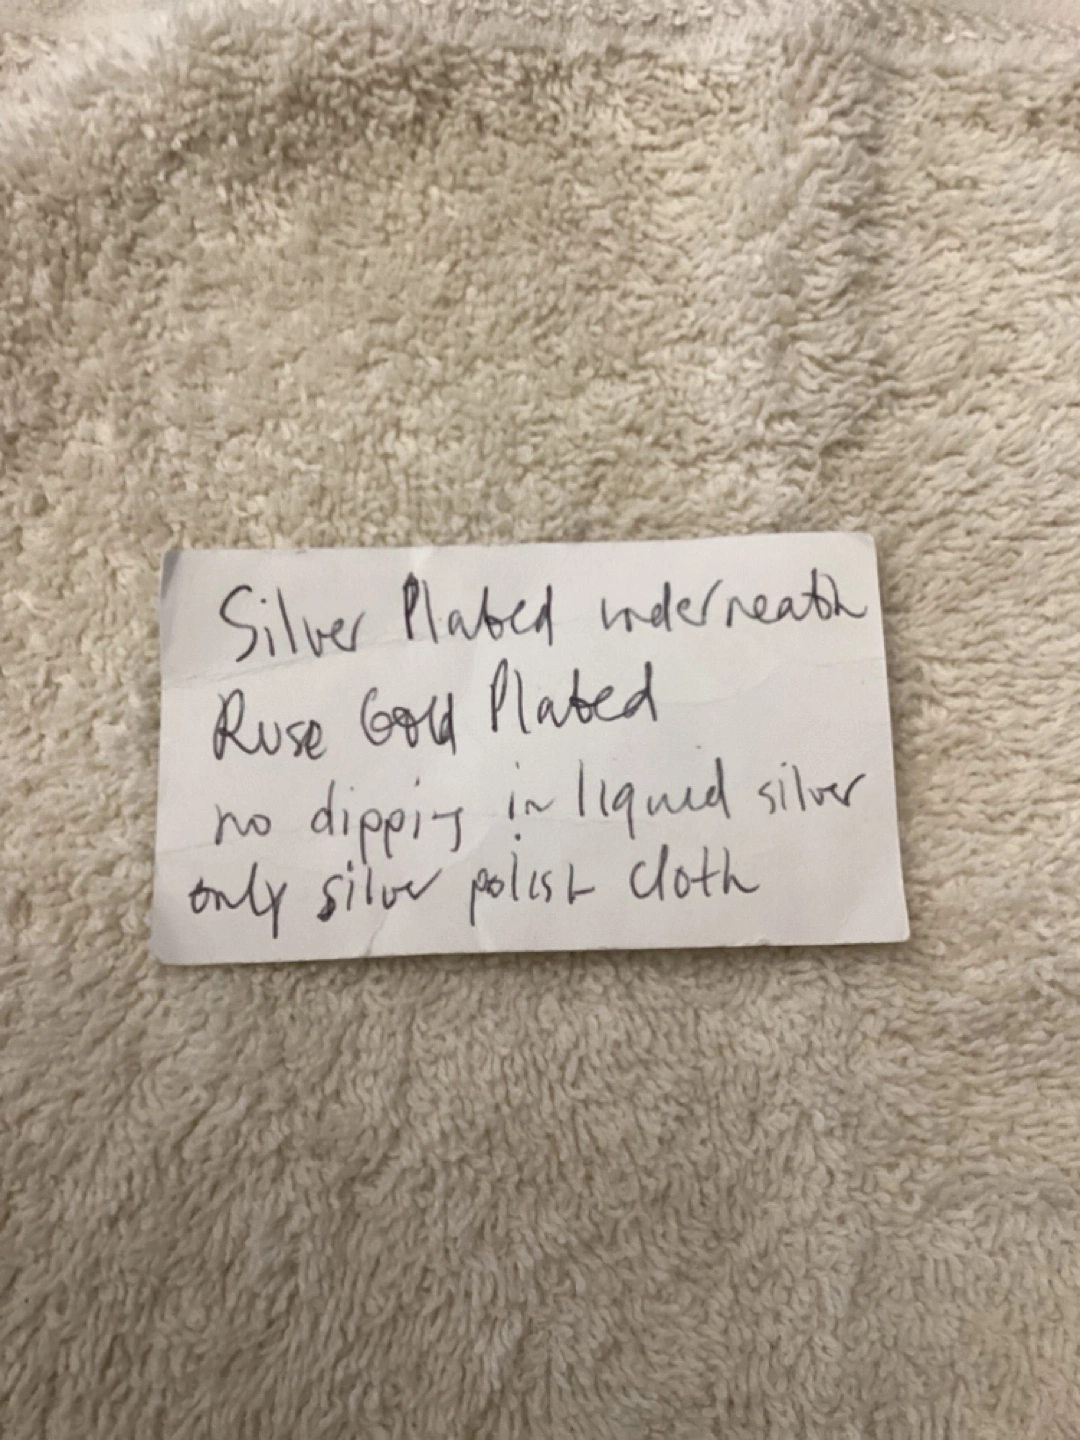 Silver Plated underneath
Rose Gold Plated
no dipping in liquid silver
only silver polish cloth